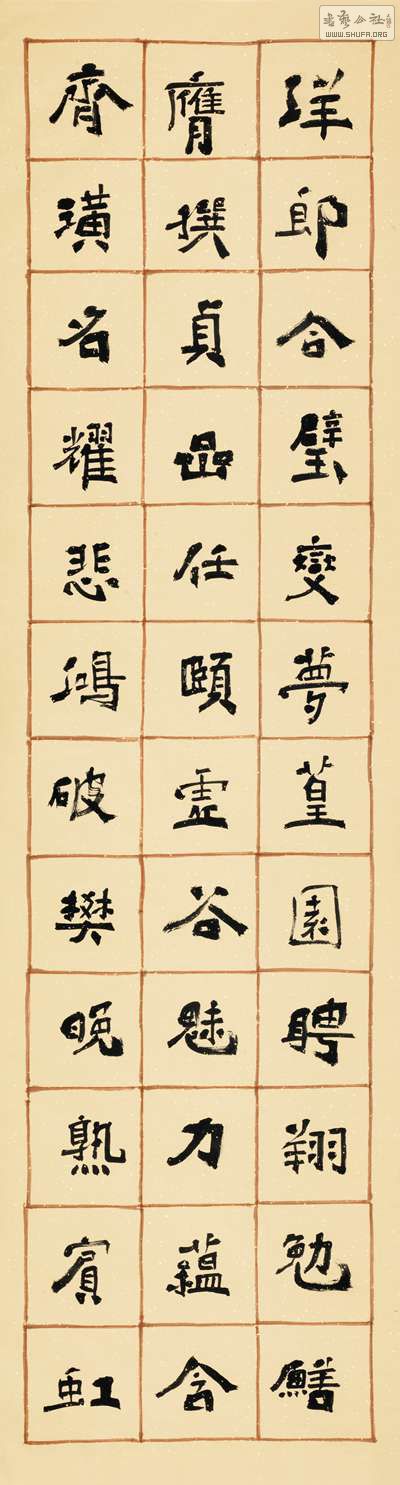 洋郎合璧燮夢篁園聘翔勉鱔
膺撰貞品任頤虛谷魅力蘊含
齊璜名耀悲鴻破樊晚熟賓虹
書藝公社
WWW.SHUFA.ORG